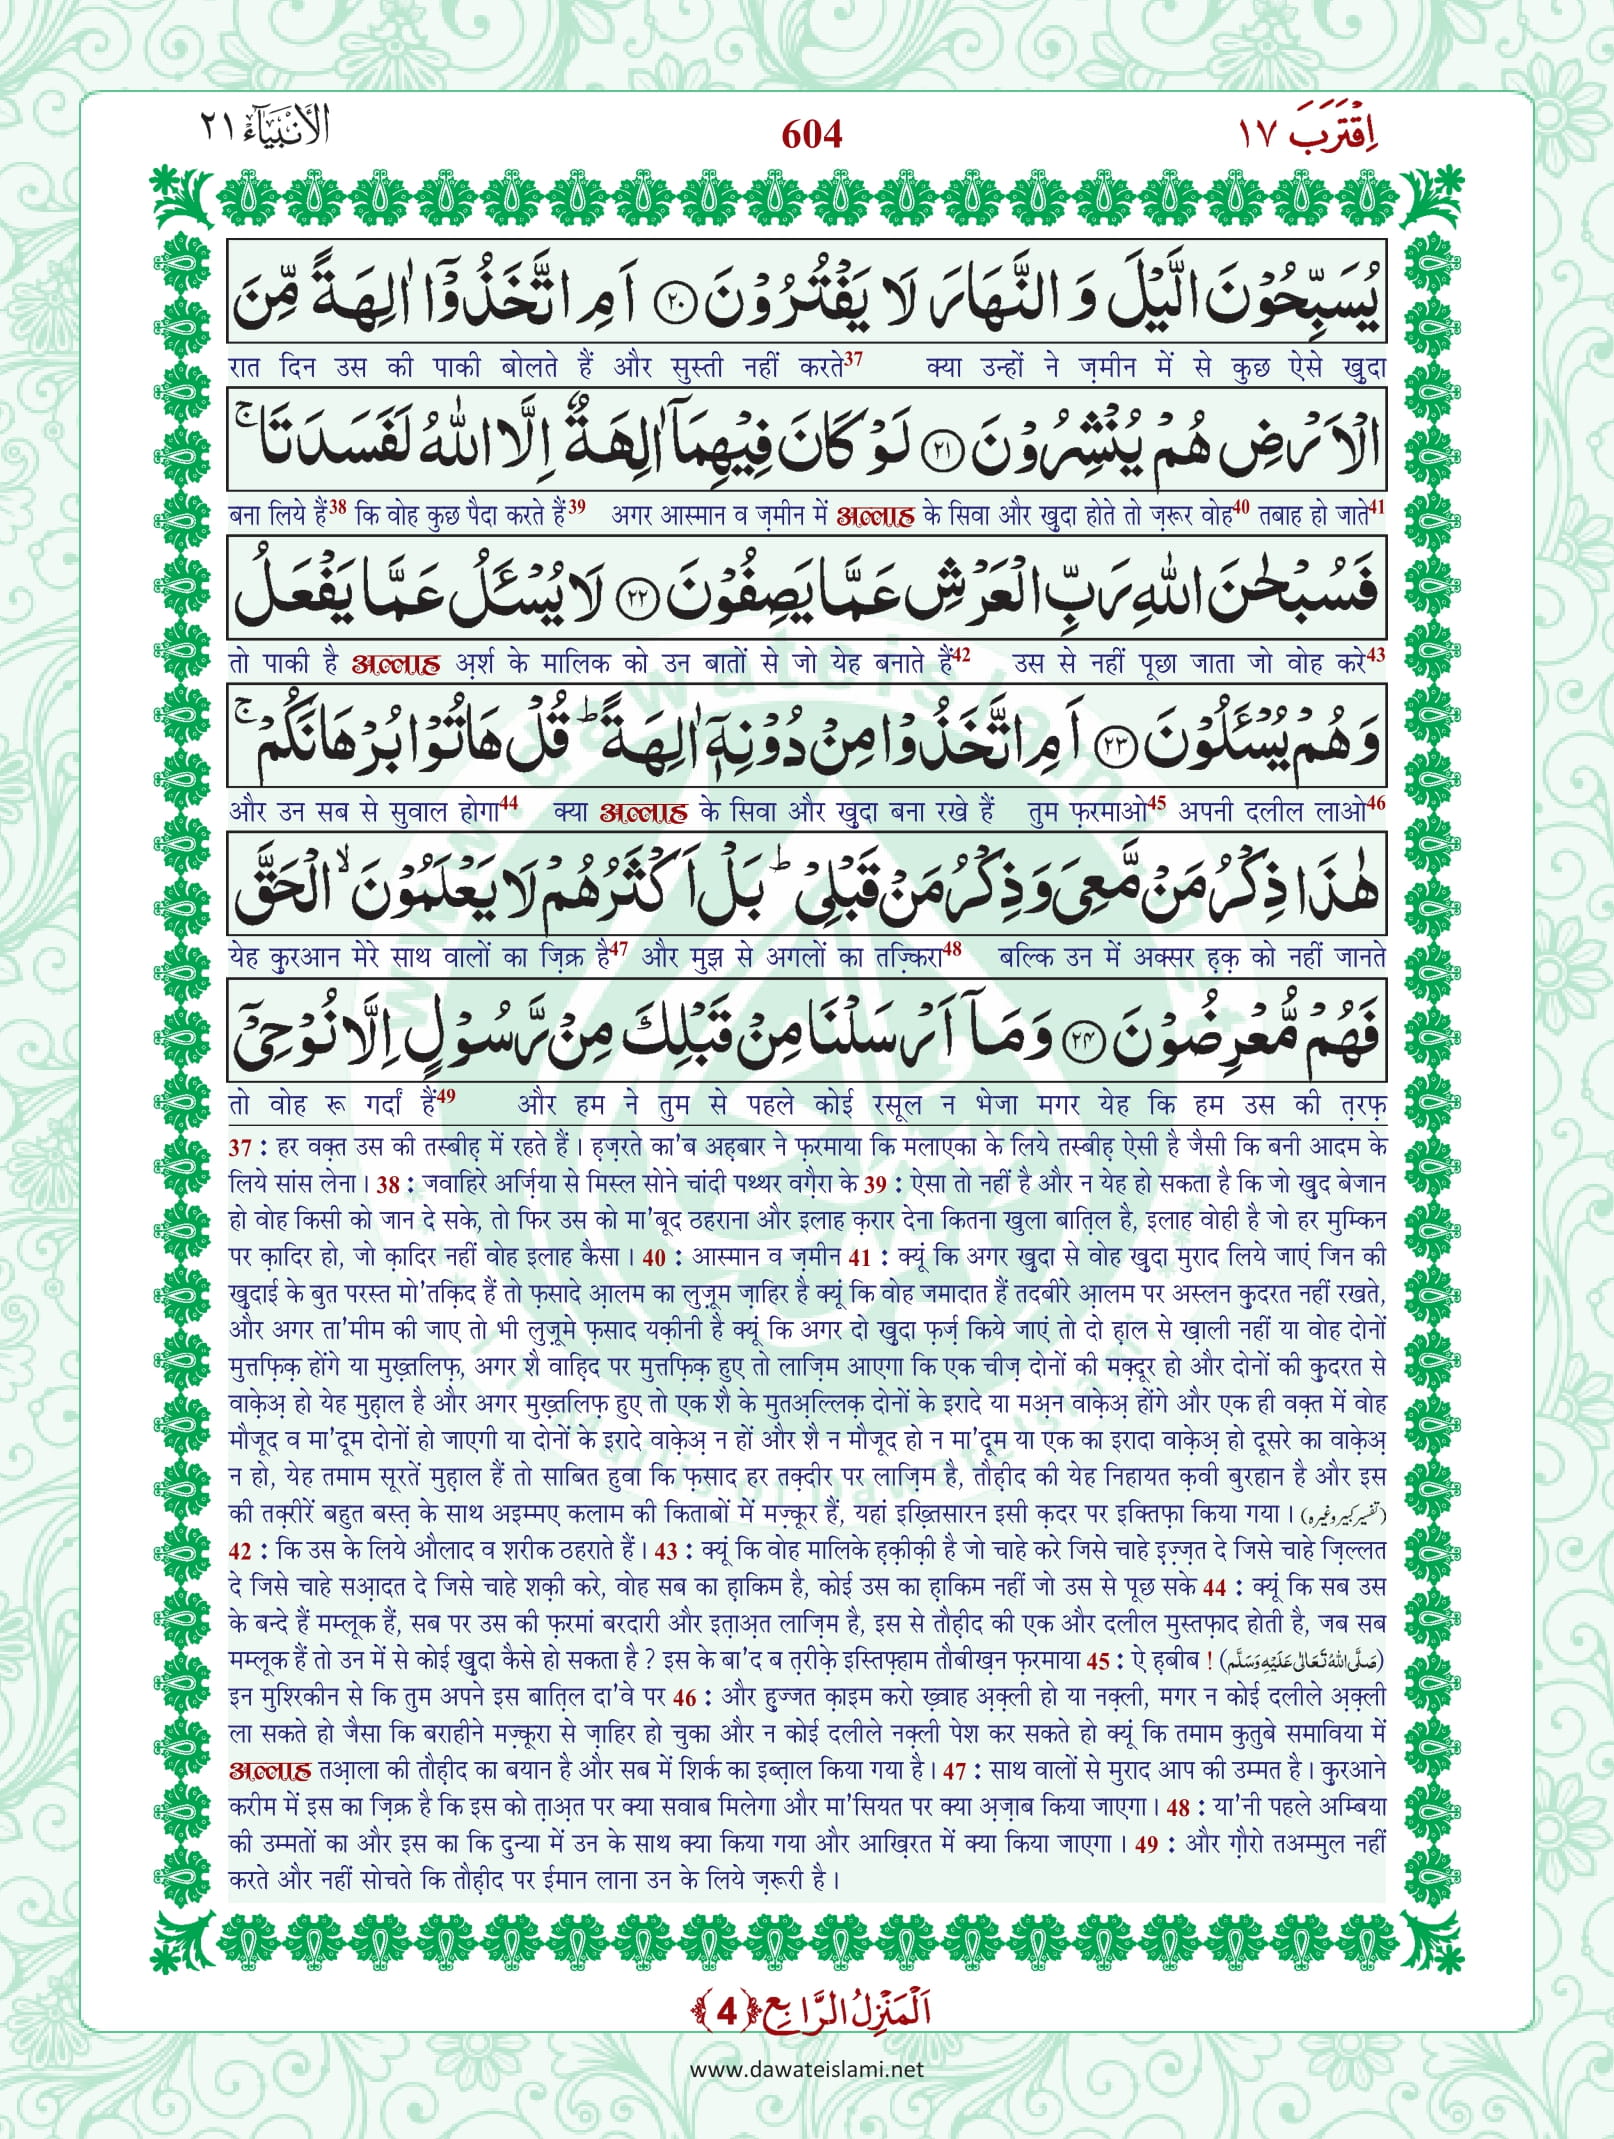 اِقْتَرَبَ ١٧ 604 الْاَنْۢبِيَآء ٢١
يُسَبِّحُوْنَ الَّيْلَ وَ النَّهَارَ لَا يَفْتُرُوْنَ ﴿٢٠﴾ اَمِ اتَّخَذُوْۤا اٰلِهَةً مِّنَ
रात दिन उस की पाकी बोलते हैं और सुस्ती नहीं करते37 क्या उन्हों ने ज़मीन में से कुछ ऐसे ख़ुदा
الْاَرْضِ هُمْ يُنْشِرُوْنَ ﴿٢١﴾ لَوْ كَانَ فِيْهِمَاۤ اٰلِهَةٌ اِلَّا اللّٰهُ لَفَسَدَتَا ۚ
बना लिये हैं38 कि वोह कुछ पैदा करते हैं39 अगर आस्मान व ज़मीन में अल्लाह के सिवा और ख़ुदा होते तो ज़रूर वोह40 तबाह हो जाते41
فَسُبْحٰنَ اللّٰهِ رَبِّ الْعَرْشِ عَمَّا يَصِفُوْنَ ﴿٢٢﴾ لَا يُسْـَٔلُ عَمَّا يَفْعَلُ
तो पाकी है अल्लाह अ़र्श के मालिक को उन बातों से जो येह बनाते हैं42 उस से नहीं पूछा जाता जो वोह करे43
وَ هُمْ يُسْـَٔلُوْنَ ﴿٢٣﴾ اَمِ اتَّخَذُوْا مِنْ دُوْنِهٖۤ اٰلِهَةً ؕ قُلْ هَاتُوْا بُرْهَانَكُمْ ۚ
और उन सब से सुवाल होगा44 क्या अल्लाह के सिवा और ख़ुदा बना रखे हैं तुम फ़रमाओ45 अपनी दलील लाओ46
هٰذَا ذِكْرُ مَنْ مَّعِيَ وَ ذِكْرُ مَنْ قَبْلِيْ ؕ بَلْ اَكْثَرُهُمْ لَا يَعْلَمُوْنَ ۙ الْحَقَّ
येह क़ुरआन मेरे साथ वालों का ज़िक्र है47 और मुझ से अगलों का तज़्किरा48 बल्कि उन में अक्सर ह़क़ को नहीं जानते
فَهُمْ مُّعْرِضُوْنَ ﴿٢٤﴾ وَ مَاۤ اَرْسَلْنَا مِنْ قَبْلِكَ مِنْ رَّسُوْلٍ اِلَّا نُوْحِيْۤ
तो वोह रू गर्दां हैं49 और हम ने तुम से पहले कोई रसूल न भेजा मगर येह कि हम उस की त़रफ़
37 : हर वक़्त उस की तस्बीह़ में रहते हैं। ह़ज़रते का'ब अह़बार ने फ़रमाया कि मलाएका के लिये तस्बीह़ ऐसी है जैसी कि बनी आदम के
लिये सांस लेना। 38 : जवाहिरे अर्ज़िया से मिस्ल सोने चांदी पथ्थर वग़ैरा के 39 : ऐसा तो नहीं है और न येह हो सकता है कि जो ख़ुद बेजान
हो वोह किसी को जान दे सके, तो फिर उस को मा'बूद ठहराना और इलाह क़रार देना कितना खुला बात़िल है, इलाह वोही है जो हर मुम्किन
पर क़ादिर हो, जो क़ादिर नहीं वोह इलाह कैसा। 40 : आस्मान व ज़मीन 41 : क्यूं कि अगर ख़ुदा से वोह ख़ुदा मुराद लिये जाएं जिन की
ख़ुदाई के बुत परस्त मो'तक़िद हैं तो फ़सादे आ़लम का लुज़ूम ज़ाहिर है क्यूं कि वोह जमादात हैं तदबीरे आ़लम पर अस्लन क़ुदरत नहीं रखते,
और अगर ता'मीम की जाए तो भी लुज़ूमे फ़साद यक़ीनी है क्यूं कि अगर दो ख़ुदा फ़र्ज़ किये जाएं तो दो ह़ाल से ख़ाली नहीं या वोह दोनों
मुत्तफ़िक़ होंगे या मुख़्तलिफ़, अगर शै वाह़िद पर मुत्तफ़िक़ हुए तो लाज़िम आएगा कि एक चीज़ दोनों की मक़्दूर हो और दोनों की क़ुदरत से
वाक़ेअ़ हो येह मुह़ाल है और अगर मुख़्तलिफ़ हुए तो एक शै के मुतअ़ल्लिक़ दोनों के इरादे या मअ़न वाक़ेअ़ होंगे और एक ही वक़्त में वोह
मौजूद व मा'दूम दोनों हो जाएगी या दोनों के इरादे वाक़ेअ़ न हों और शै न मौजूद हो न मा'दूम या एक का इरादा वाक़ेअ़ हो दूसरे का वाक़ेअ़
न हो, येह तमाम सूरतें मुह़ाल हैं तो साबित हुवा कि फ़साद हर तक़्दीर पर लाज़िम है, तौह़ीद की येह निहायत क़वी बुरहान है और इस
की तक़्रीरें बहुत बस्त़ के साथ अइम्मए कलाम की किताबों में मज़्कूर हैं, यहां इख़्तिसारन इसी क़दर पर इक्तिफ़ा किया गया। (تفسیر کبیر وغیرہ)
42 : कि उस के लिये औलाद व शरीक ठहराते हैं। 43 : क्यूं कि वोह मालिके ह़क़ीक़ी है जो चाहे करे जिसे चाहे इ़ज़्ज़त दे जिसे चाहे ज़िल्लत
दे जिसे चाहे सआ़दत दे जिसे चाहे शक़ी करे, वोह सब का ह़ाकिम है, कोई उस का ह़ाकिम नहीं जो उस से पूछ सके 44 : क्यूं कि सब उस
के बन्दे हैं मम्लूक हैं, सब पर उस की फ़रमां बरदारी और इत़ाअ़त लाज़िम है, इस से तौह़ीद की एक और दलील मुस्तफ़ाद होती है, जब सब
मम्लूक हैं तो उन में से कोई ख़ुदा कैसे हो सकता है ? इस के बा'द ब त़रीक़े इस्तिफ़्हाम तौबीख़न फ़रमाया 45 : ऐ ह़बीब ! (صَلَّى اللهُ تَعَالٰى عَلَيْهِ وَسَلَّم)
इन मुश्रिकीन से कि तुम अपने इस बात़िल दा'वे पर 46 : और ह़ुज्जत क़ाइम करो ख़्वाह अ़क़्ली हो या नक़्ली, मगर न कोई दलीले अ़क़्ली
ला सकते हो जैसा कि बराहीने मज़्कूरा से ज़ाहिर हो चुका और न कोई दलीले नक़्ली पेश कर सकते हो क्यूं कि तमाम कुतुबे समाविया में
अल्लाह तआ़ला की तौह़ीद का बयान है और सब में शिर्क का इब्त़ाल किया गया है। 47 : साथ वालों से मुराद आप की उम्मत है। क़ुरआने
करीम में इस का ज़िक्र है कि इस को त़ाअ़त पर क्या सवाब मिलेगा और मा'सियत पर क्या अ़ज़ाब किया जाएगा। 48 : या'नी पहले अम्बिया
की उम्मतों का और इस का कि दुन्या में उन के साथ क्या किया गया और आख़िरत में क्या किया जाएगा। 49 : और ग़ौरो तअम्मुल नहीं
करते और नहीं सोचते कि तौह़ीद पर ईमान लाना उन के लिये ज़रूरी है।
اَلْمَنْزِلُ الرَّابِع ﴿4﴾
www.dawateislami.net